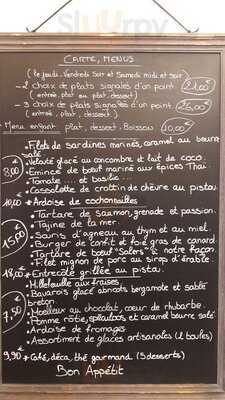 Sluurpy
CARTE, MENUS
(le jeudi, Vendredi Soir et Samedi midi et soir)
- 2 choix de plats signalés d'un point
(entrée, plat ou plat, dessert)
21,00€
- 3 choix de plats signalés d'un point
(entrée, plat, dessert)
26,00€
Menu enfant plat, dessert, Boisson 10,00€
Filets de sardines marinés, caramel au beurre
salé
Velouté glacé au concombre et lait de coco.
8,00€
Emincé de bœuf mariné aux épices Thaï
Tomate .... et basilic
Cassolette de crottin de chèvre au pistou
10,00€ Ardoise de cochonailles
Tartare de saumon, grenade et passion.
Tajine de la mer
15,00€
Souris d'agneau au thym et au miel.
Burger de confit et foie gras de canard
Tartare de bœuf "Salers" à notre façon.
Filet mignon de porc au sirop d'érable.
18,00€ Entrecôte grillée au pistou.
Millefeuille aux fraises,
Bavarois glacé abricots bergamote et sablé
breton.
7,50€
Moelleux au chocolat, cœur de rhubarbe.
Pomme rôtie, spéculoos et caramel beurre salé
Ardoise de fromages
Assortiment de glaces artisanales (2 boules)
9,90€ Café, déca, thé gourmand. (3 desserts)
Bon Appétit